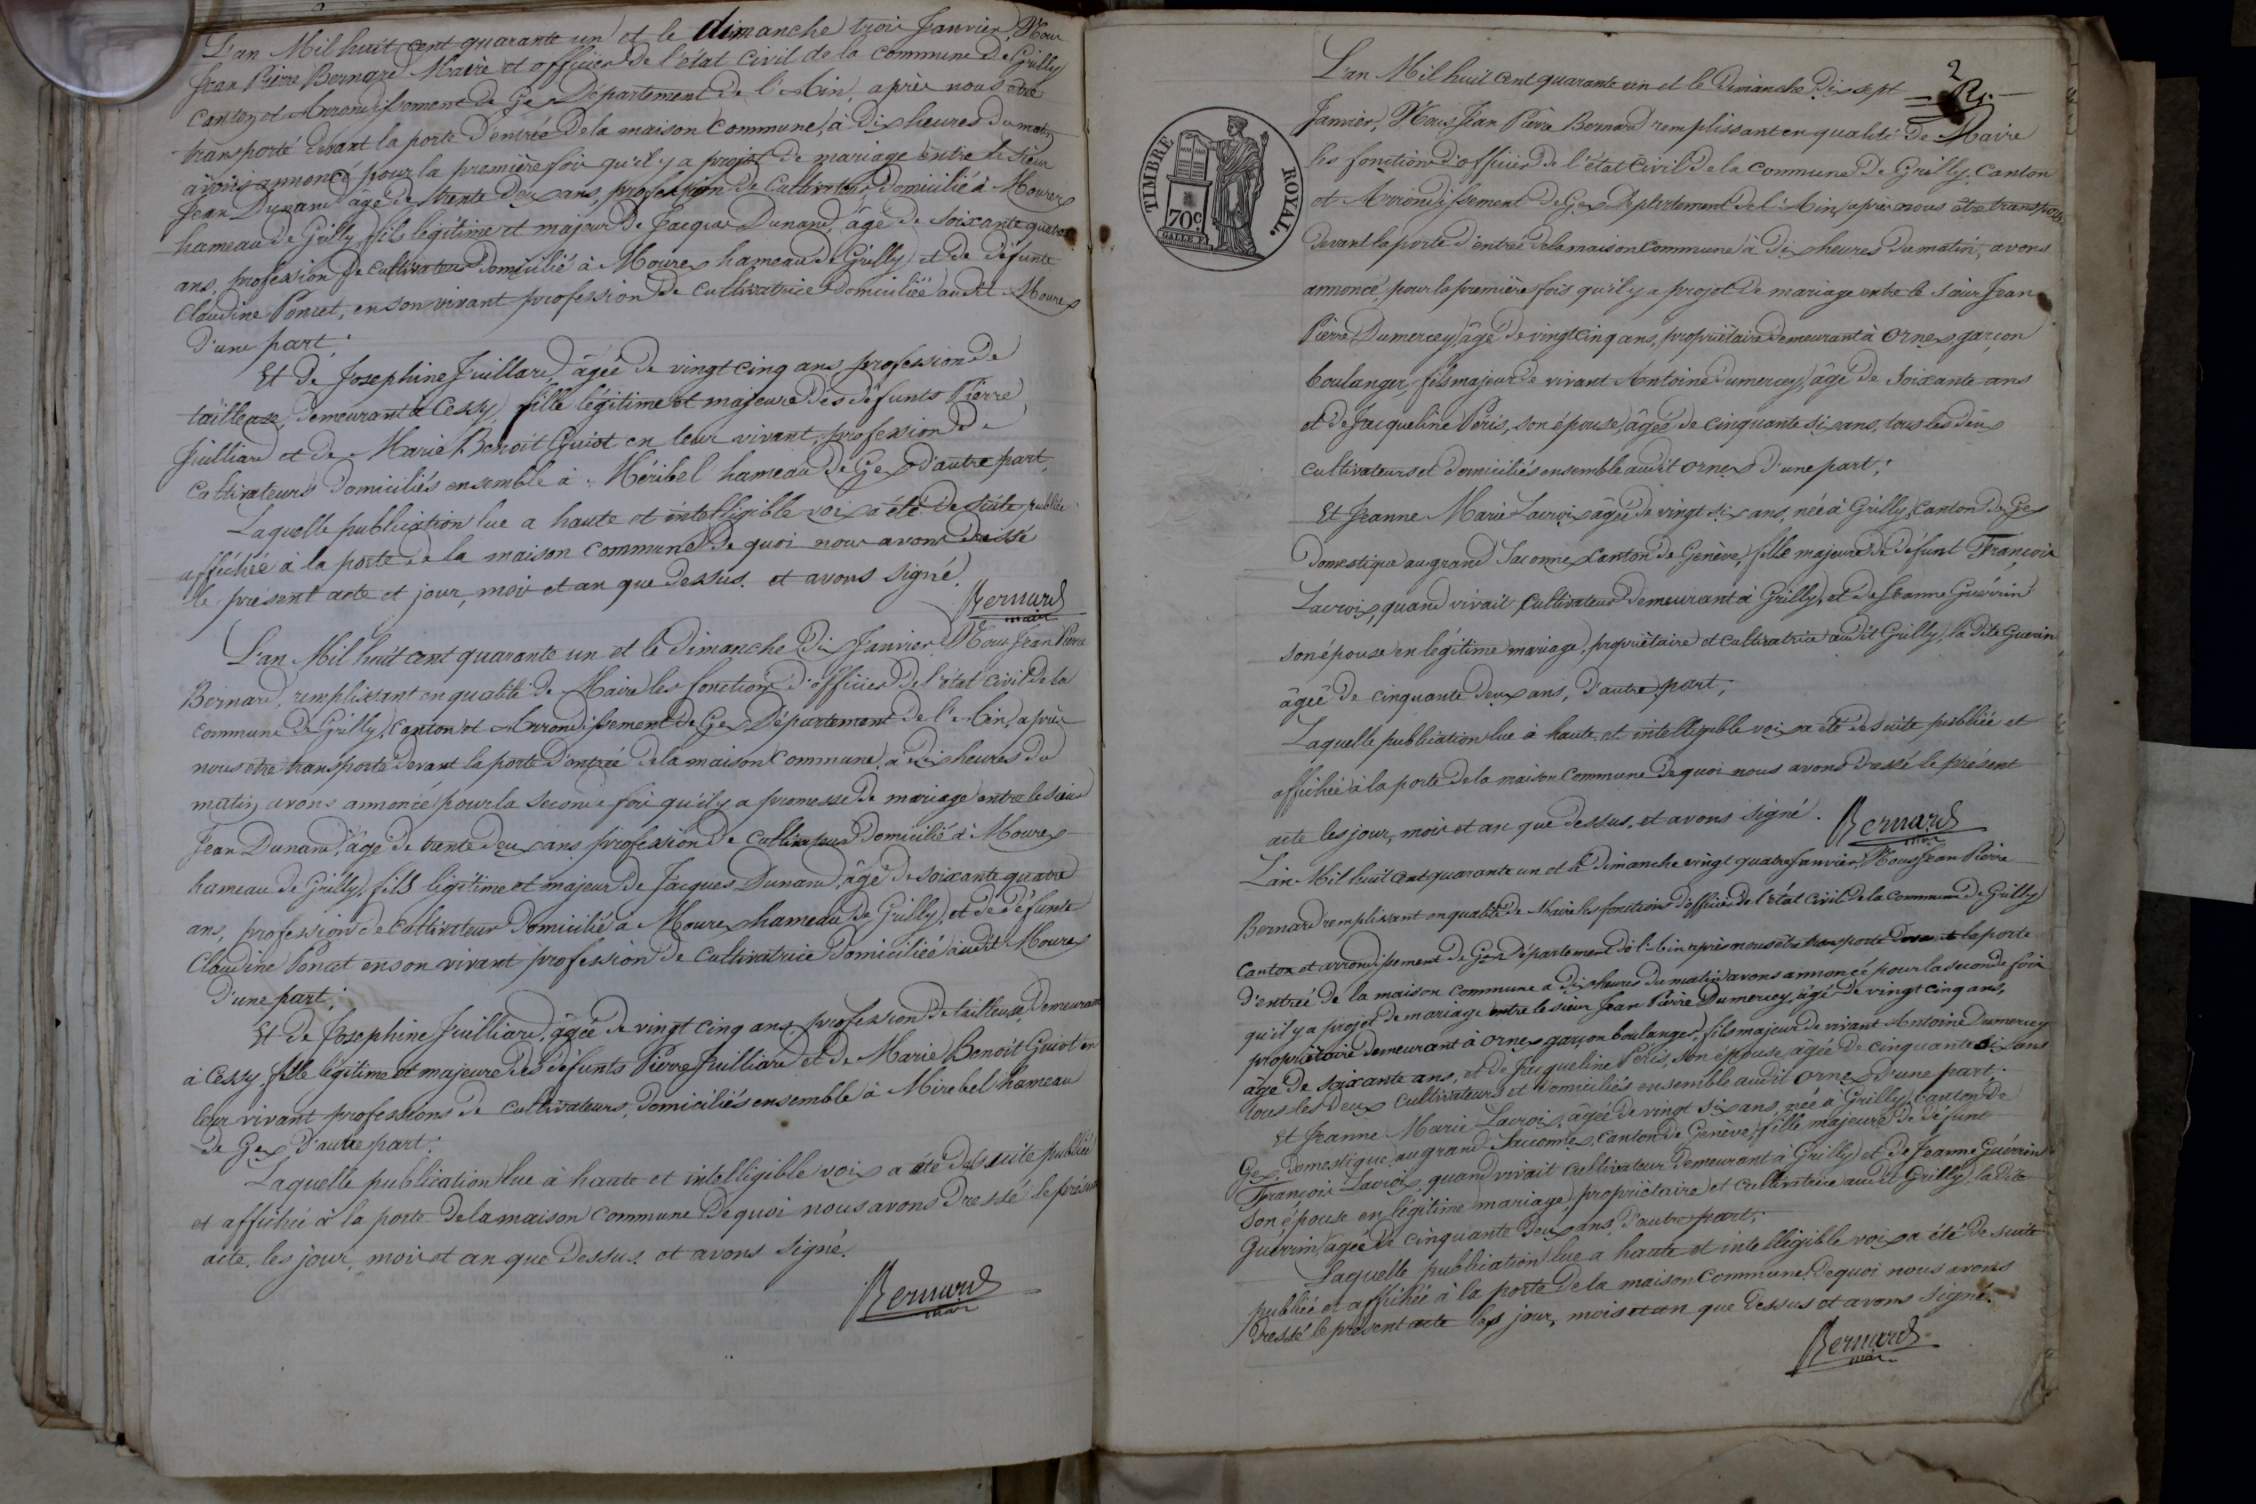 L'an Mil huit cent quarante un et le dimanche trois Janvier, Nous
Jean Pierre Bernard Maire et officier de l'état civil de la commune de Grilly
canton et Arrondissement de Gex Département de l'Ain, après nous être
transporté devant la porte d'entrée de la maison commune, à dix heures du matin
avons annoncé pour la première fois qu'il y a projet de mariage entre le sieur
Jean Dunand âgé de trente deux ans, profession de cultivateur domicilié à Mourex
hameau de Grilly, fils légitime et majeur de Jacques Dunand, âgé de soixante quatre
ans, profession de cultivateur domicilié à Mourex hameau de Grilly, et de défunte
Claudine Poncet, en son vivant profession de cultivatrice domiciliée audit Mourex
d'une part;
Et de Josephine Juillard, âgée de vingt cinq ans, profession de
tailleuse, demeurant à Cessy, fille légitime et majeure des défunts Pierre
Juilliard et de Marie Benoit Guiot en leur vivant, profession de
cultivateurs domiciliés ensemble à Méribel hameau de Gex d'autre part,
Laquelle publication lue a haute et intelligible voix a été de suite publiée
affichée à la porte de la maison commune de quoi nous avons dressé
le présent acte et jour, mois et an que dessus. et avons signé.
Bernard
maire
L'an Mil huit cent quarante un et le dimanche dix Janvier, Nous Jean Pierre
Bernard, remplissant en qualité de Maire les fonctions d'officier de l'état civil de la
commune de Grilly, canton et Arrondissement de Gex Département de l'Ain, après
nous être transporté devant la porte d'entrée de la maison commune à dix heures du
matin, avons annoncé pour la seconde fois qu'il y a promesse de mariage entre le sieur
Jean Dunand, âgé de trente deux ans profession de cultivateur domicilié à Mourex
hameau de Grilly, fils légitime et majeur de Jacques Dunand, âgé de soixante quatre
ans, profession de cultivateur domicilié à Mourex hameau de Grilly, et de défunte
Claudine Poncet en son vivant profession de cultivatrice domiciliée audit Mourex
d'une part;
Et de Josephine Juilliard, âgée de vingt cinq ans profession de tailleuse, demeurant
à Cessy, fille légitime et majeure des défunts Pierre Juilliard et de Marie Benoit Guiot en
leur vivant professions de cultivateurs, domiciliés ensemble à Mirebel hameau
de Gex d'autre part;
Laquelle publication lue à haute et intelligible voix a été de suite publiée
et affichée à la porte de la maison commune de quoi nous avons dressé le présent
acte, les jour, mois et an que dessus. et avons signé.
Bernard
maire
2
TIMBRE ROYAL.
70c.
L'an Mil huit cent quarante un et le dimanche dix sept
Janvier, Nous Jean Pierre Bernard remplissant en qualité de Maire
les fonctions d'officier de l'état civil de la commune de Grilly, canton
et Arrondissement de Gex Département de l'Ain, après nous être transporté
devant la porte d'entrée de la maison commune à dix heures du matin, avons
annoncé, pour la première fois, qu'il y a projet de mariage entre le sieur Jean
Pierre Dumercey, âgé de vingt cinq ans, propriétaire demeurant à Ornex, garçon
boulanger, fils majeur de vivant Antoine Dumercey, âgé de soixante ans
et de Jacqueline Péris, son épouse, âgée de cinquante six ans, tous les deux
cultivateurs et domiciliés ensemble audit Ornex d'une part;
Et Jeanne Marie Lacroix âgée de vingt six ans, née à Grilly, canton de Gex
domestique au grand Saconnex canton de Genève, fille majeure de défunt François
Lacroix, quand vivait cultivateur demeurant à Grilly, et de Jeanne Guérrin
son épouse en légitime mariage, propriétaire et cultivatrice audit Grilly, la dite Guerin
âgée de cinquante deux ans, d'autre part;
Laquelle publication lue à haute et intelligible voix a été de suite publiée et
affichée à la porte de la maison commune de quoi nous avons dressé le présent
acte les jour, mois et an que dessus, et avons signé.
Bernard
maire
L'an Mil huit cent quarante un et le dimanche vingt quatre Janvier, Nous Jean Pierre
Bernard remplissant en qualité de Maire les fonctions d'officier de l'état civil de la commune de Grilly
canton et arrondissement de Gex Département de l'Ain après nous être transporté devant la porte
d'entrée de la maison commune à dix heures du matin avons annoncé pour la seconde fois
qu'il y a projet de mariage entre le sieur Jean Pierre Dumercey, âgé de vingt cinq ans,
propriétaire demeurant à Ornex garçon boulanger, fils majeur de vivant Antoine Dumercey
âgé de soixante ans, et de Jacqueline Péris, son épouse, âgée de cinquante six ans
tous les deux cultivateurs et domiciliés ensemble audit Ornex d'une part;
Et Jeanne Marie Lacroix, âgée de vingt six ans, née à Grilly, canton de
Gex domestique au grand Saconnex, canton de Genève, fille majeure de défunt
François Lacroix, quand vivait cultivateur demeurant à Grilly, et de Jeanne Guérrin
son épouse en légitime mariage, propriétaire et cultivatrice audit Grilly, la dite
Guerrin, âgée de cinquante deux ans d'autre part;
Laquelle publication lue a haute et intelligible voix a été de suite
publiée et affichée à la porte de la maison commune, de quoi nous avons
dressé le présent acte les jour, mois et an que dessus et avons signé.
Bernard
maire